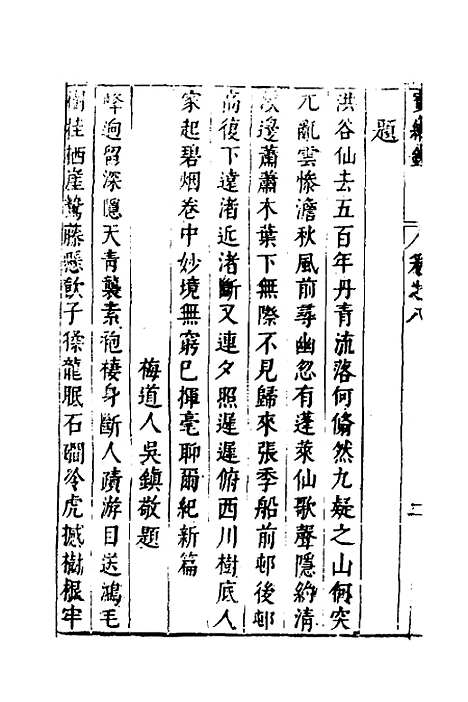 寶繪錄 卷之八 二
題
洪谷仙去五百年丹青流落何翛然九疑之山何突
兀亂雲慘澹秋風前尋幽忽有蓬萊仙歌聲隱約清
溪邊蕭蕭木葉下無際不見歸來張季船前邨後邨
高復下遠渚近渚斷又連夕照遲遲俯西川樹底人
家起碧烟卷中妙境無窮已揮毫聊爾紀新篇
梅道人吳鎮敬題
峰迴留深隱天青襲素袍棲身斷人蹟游目送鴻毛
樹桂栖崖鶩藤懸飲子猱龍眠石磵冷虎撼樹根牢